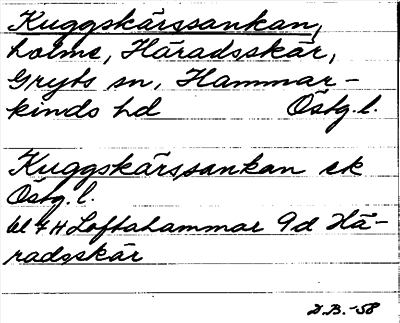 Kuggskärssankan,
holme, Häradsskär,
Gryts sn, Hammar-
kinds hd Östg.l.
Kuggskärssankan ek
Östg.l.
bl 7H Loftahammar 9d Hä-
radsskär
D.B.-58